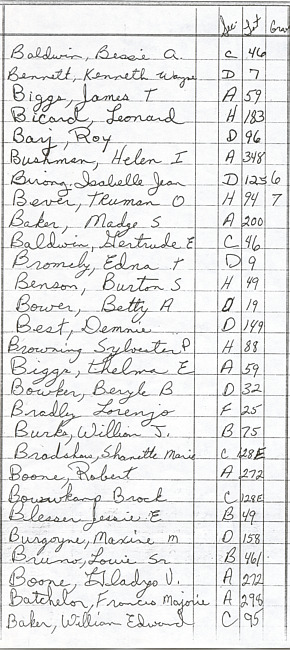 Sec Lot Grave
Baldwin, Bessie A. C 46
Bennett, Kenneth Wayne D 7
Biggs, James T A 59
Bicard, Leonard H 183
Barj, Roy D 96
Bushman, Helen I A 348
Birong, Isabelle Jean D 125 6
Bever, Truman O H 94 7
Baker, Madge S A 200
Baldwin, Gertrude E C 46
Bromely, Edna T D 9
Benson, Burton S H 49
Bower, Betty A D 19
Best, Demmie D 149
Browning Sylvester P H 88
Biggs, Thelma E A 59
Bowker, Beryle B D 32
Bradly Lorenjo F 25
Burks, William J. B 75
Bradshaw, Shanette Marie C 128E
Boone, Robert A 272
Bouwkamp Brock C 128E
Blesser Jessie E B 49
Burgoyne, Maxine M D 158
Bruno, Louie Sr. B 461
Boone, Gladys V. A 272
Batchelor, Francis Majorie A 298
Baker, William Edward C 95